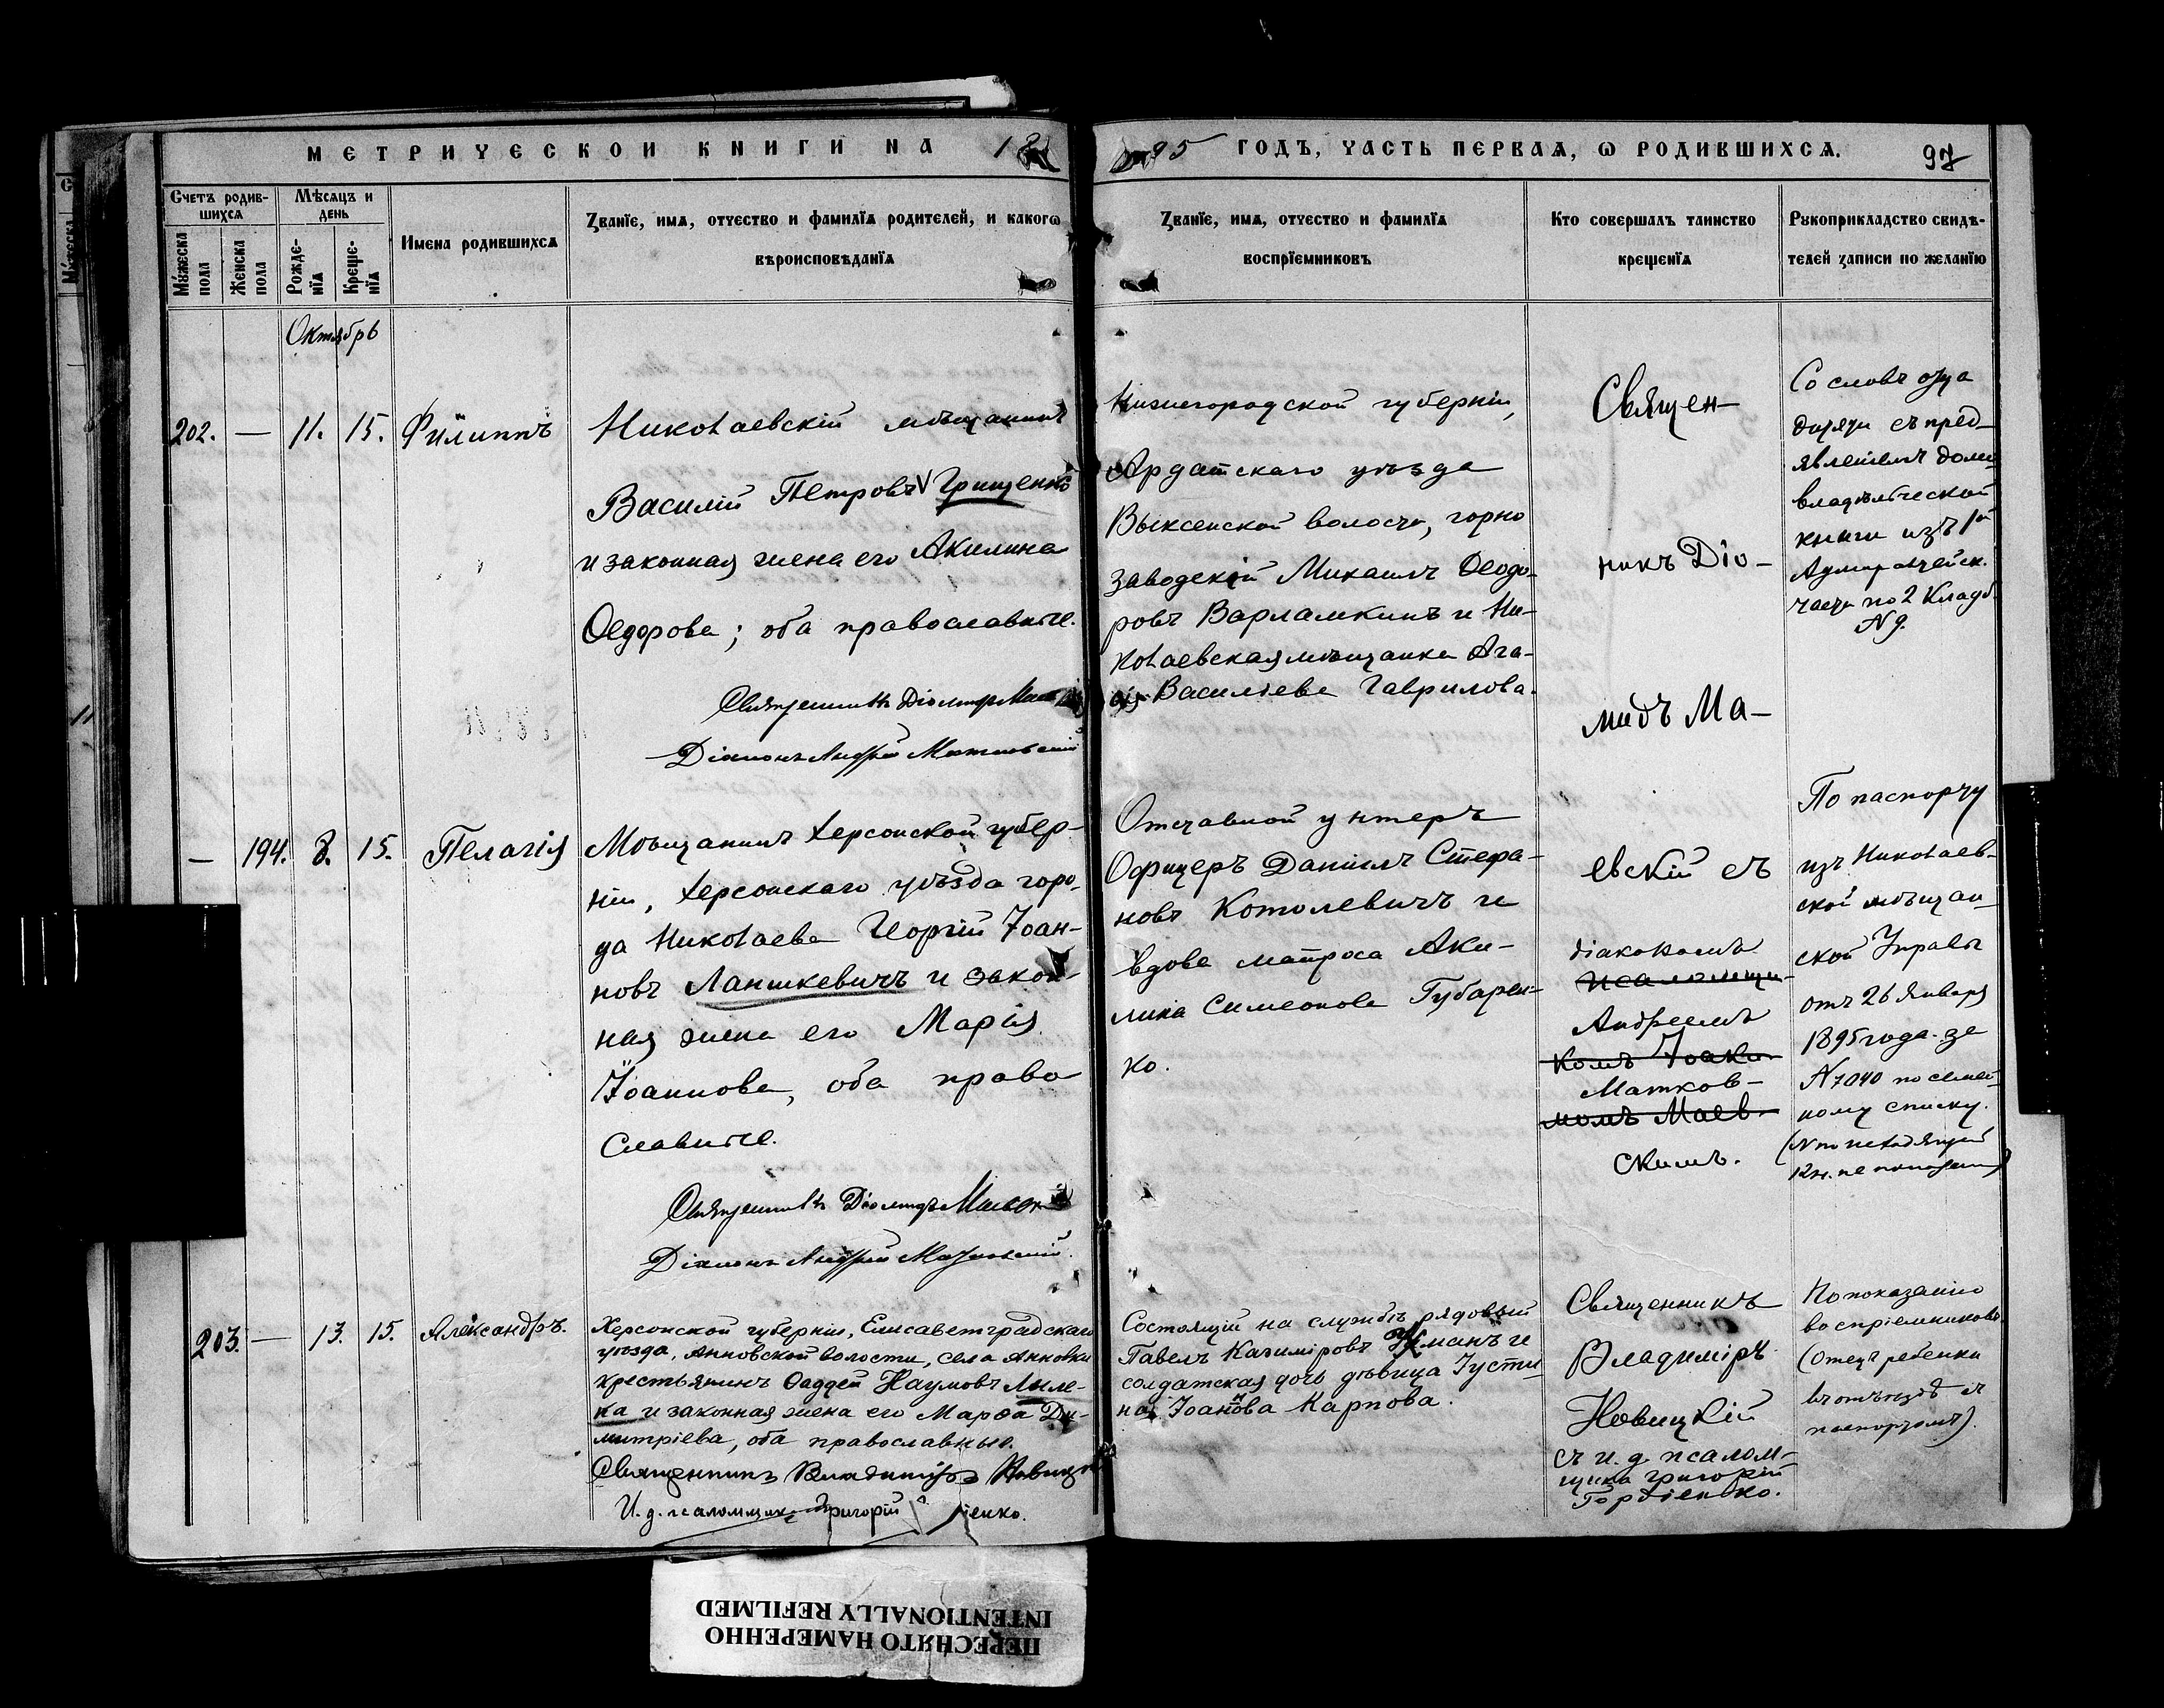 МЕТРИЧЕСКОЙ КНИГИ НА 18
95 ГОДЪ, ЧАСТЬ ПЕРВАЯ, Ѡ РОДИВШИХСЯ.
97
Счетъ родив-
шихся
Мѣсяцъ и
день
Мужеска
пола
Женска
пола
Рожде-
нія
Креще-
нія
Имена родившихся
Званіе, имя, отчество и фамилія родителей, и какогѡ
вѣроисповѣданія
Званіе, имя, отчество и фамилія
воспріемниковъ
Кто совершалъ таинство
крещенія
Рукоприкладство свидѣ-
телей записи по желанію
Октябрь
202. — 11. 15. Филиппъ
Николаевскій мѣщанинъ
Василій Петровъ Грищенко
и законная жена его Акилина
Ѳедорова; оба православные.
Священникъ Діомидъ
Діаконъ Андрей Матковскій
Нижегородской губерніи,
Ардатскаго уѣзда
Выксенской волости, горно
заводскій Михаилъ Ѳеодо-
ровъ Варламкинъ и Ни-
колаевская мѣщанка Ага-
Васильева Гаврилова.
Священ-
никъ Діо-
мидъ Ма-
евскій съ
діакономъ
псаломщи-
Андреемъ
комъ Іоаки-
Матков-
момъ Маев-
скимъ.
Со словъ отца
дитяти съ пред-
явленіемъ домо
владѣльческой
книги изъ 1й
Адмиралтейск.
части по 2 Кладб.
N 9.
— 194. 8. 15. Пелагія
Мѣщанинъ Херсонской губер-
ніи, Херсонскаго уѣзда горо-
да Николаева Георгій Іоан-
новъ Лапшкевичъ и закон-
ная жена его Марія
Іоаннова, оба право
славные.
Священникъ Діомидъ
Діаконъ Андрей Матковскій.
Отставной унтеръ
Офицеръ Даніилъ Стефа-
новъ Котолевичъ и
вдова матроса Аки-
лина Симеонова Губарен-
ко.
По паспорту
изъ Николаев-
ской мѣщан-
ской Управы
отъ 26 Января
1895 года за
N 7040 по семей-
ному списку.
203. — 13. 15. Александръ.
Херсонской губерніи, Елисаветградскаго
уѣзда, Анновской волости, села Анновки
крестьянинъ Ѳаддей Наумовъ Лыле-
ка и законная жена его Марѳа Ди-
митріева, оба православные.
Священникъ Владиміръ Новицкій
И. д. псаломщика Григорій
Состоящій на службѣ рядовый
Павелъ Казиміровъ
солдатская дочь дѣвица Іусти-
на Іоаннова Карпова.
Священникъ
Владиміръ
Новицкій
съ и. д. псалом-
щика Григорій
Гордіенко.
По показанію
воспріемниковъ
(Отецъ ребенка
въ отъѣздѣ съ
паспортомъ).
ПЕРЕСНЯТО НАМЕРЕННО
INTENTIONALLY REFILMED